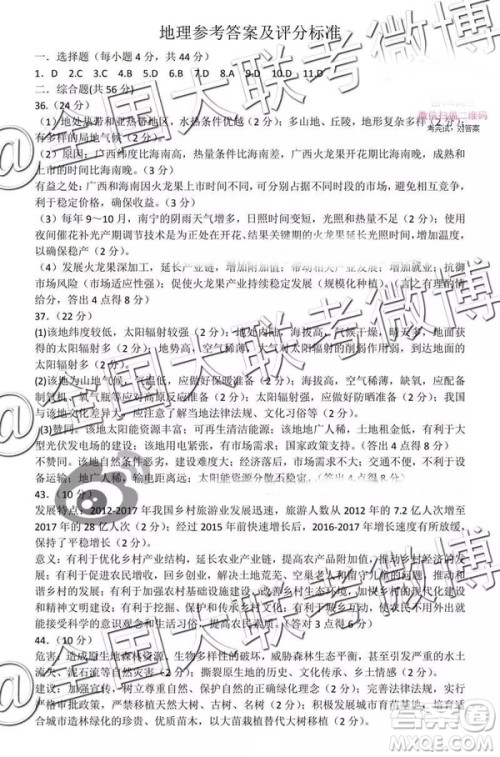 地理参考答案及评分标准
一．选择题（每小题 4 分，共 44 分）
1．D 2.C 3.C 4.B 5.B 6.C 7.D 8.A 9.D 10.D 11.D
二．综合题(共 56 分)
36.（24 分）
微信扫描二维码
考完试·对答案
(1) 地处热带和亚热带地区，水热条件优越（2 分）；多山地、丘陵，
有多样的局地气候（2 分）
（2）原因：广西纬度比海南高，热量条件比海南差，广西火龙果开花期比海南晚，成熟和
上市的时间晚（3 分）
有益之处:广西和海南因火龙果上市时间不同，可分别占据不同时间段的市场，避免竞争，有利
于稳定价格，确保收益。（3 分）
（3）每年 9～10 月，南宁的阴雨天气增多，日照时间变短，光照不足（2 分）。使用
夜间催花补光产期调节技术是为正处在开花、结果关键期的火龙果延长光照时间，增加温度，
以确保稳产（2 分）。
（4）发展火龙果深加工，延长产业链，增加附加值；带动相关产业发展；增加就业；抗御
市场风险（市场适应性增强）；使火龙果产业持续稳定发展；言之有理的
情给分。（答出 4 点得 8 分）
37.（22 分）
(1)该地纬度较低，太阳辐射较强（2 分）；该地气候干燥，天气晴，晴天多，
得的太阳辐射多（2 分）；地势高，空气稀薄，对太阳辐射的削弱作用弱，到达地面
的太阳辐射多（2 分）。
(2)该地为山地气候，气温低，应做好保暖准备（2 分）；海拔高，空气稀薄，缺氧，应配备
制氧机、氧气瓶等应对高原反应准备（2 分）；太阳辐射强，应做好防晒准备（2 分）；该地
与本地文化差异大，应注意了解当地法律法规、文化习俗等（2 分）。
(3)赞同。该地太阳能资源丰富；可与农牧业相结合；该地地广人稀，土地租金低，有利于大
型光伏发电场的建设；该地用电紧张，有利于缓解用电需求；国家政策支持。（答出 4 点得 8 分）
不赞同。该地自然条件恶劣，施工困难；该地交通不便，建设成本高；温差大，不利于维护
设备运输；地广人稀，输电距离远；太阳能资源分散不稳定
43.（10 分）
发展特点：2012-2017 年我国乡村旅游业发展迅速，旅游人数从 2012 年的 7.2 亿人次增至
2017 年的 28 亿人次（2 分）；经过 2015 年前快速增长，2016-2017 年增长速度有所放缓，
保持了平稳增长（2 分）。
意义：有利于优化乡村产业结构；有利于延长农业产业链，提高农产品附加值，有利于
促进农民增收；有利于农民回乡创业，解决乡村土地荒芜、空巢老人和留守儿童的问题，推动和
谐乡村的发展；有利于加强农村基础设施建设，改善乡村生态环境，有利于乡村的文化建设
和精神文明建设；有利于提升农民的环境意识观念和生活习俗。（答对 3 点得 6 分）
44.（10 分）
危害：造成原生地森林资源、生物多样性减少；破坏了原生地的生态平衡；加剧水土流失，
增大发生自然灾害的风险；撕裂原生地的历史文化、乡土情感（2 分）
建议：加强宣传，树立典型，提高人们的生态文明意识（2 分）；完善法律法规，实行
严格审批政策，禁止移植天然大树、古树、名树（2 分）；建立苗圃基地，培育适
合城市造林绿化的珍贵、优质苗木，以大苗栽植替代大树移植（2 分）。
@全国大联考微博
答案圈
MXEQ.COM